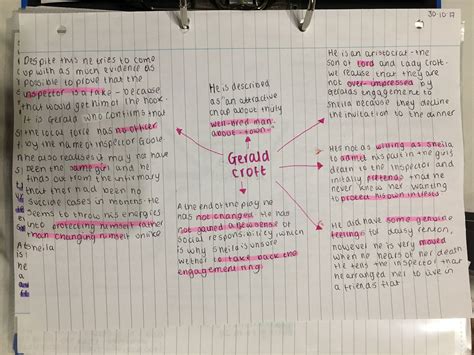 30-10-17
Despite this he tries to come
up with as much evidence as
possible to prove that the
inspector is a fake - because
that would get him of the hook
It is Gerald who confirms that
the local force has no officer
by the name of Inspector Goole.
he also realises it may no have
been the same girl and he
finds out from the infirmary
that ther had been no
suicide cases in months. He
seems to throw his energies
into protecting himself rather
than changing himself unlike
sheila
He is described
as "an attractive
chap about thirty
well-bred man-
about-town"
Gerald
croft
At the end of the play he
has not changed. He has
not gained a new sense of
social responsibility, which
is why Sheila is unsure
wether to take back the
engagement ring.
He is an aristocrat - the
son of lord and Lady Croft.
we realise that they are
not over-impressed by
Geralds engagement to
sheila because they decline
the invitation to the dinner
He's not as willing as sheila
to admit his part in the girls
death to the inspector and
initially pretends that he
never knew her wanting
to protect his own interests
He did have some genuine
feeling for daisy renton,
however he is very moved
when he hears of her death
He tells the inspector that
he arranged her to live in
a friends flat